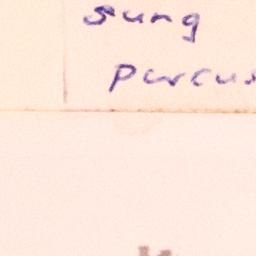 sung
purcus